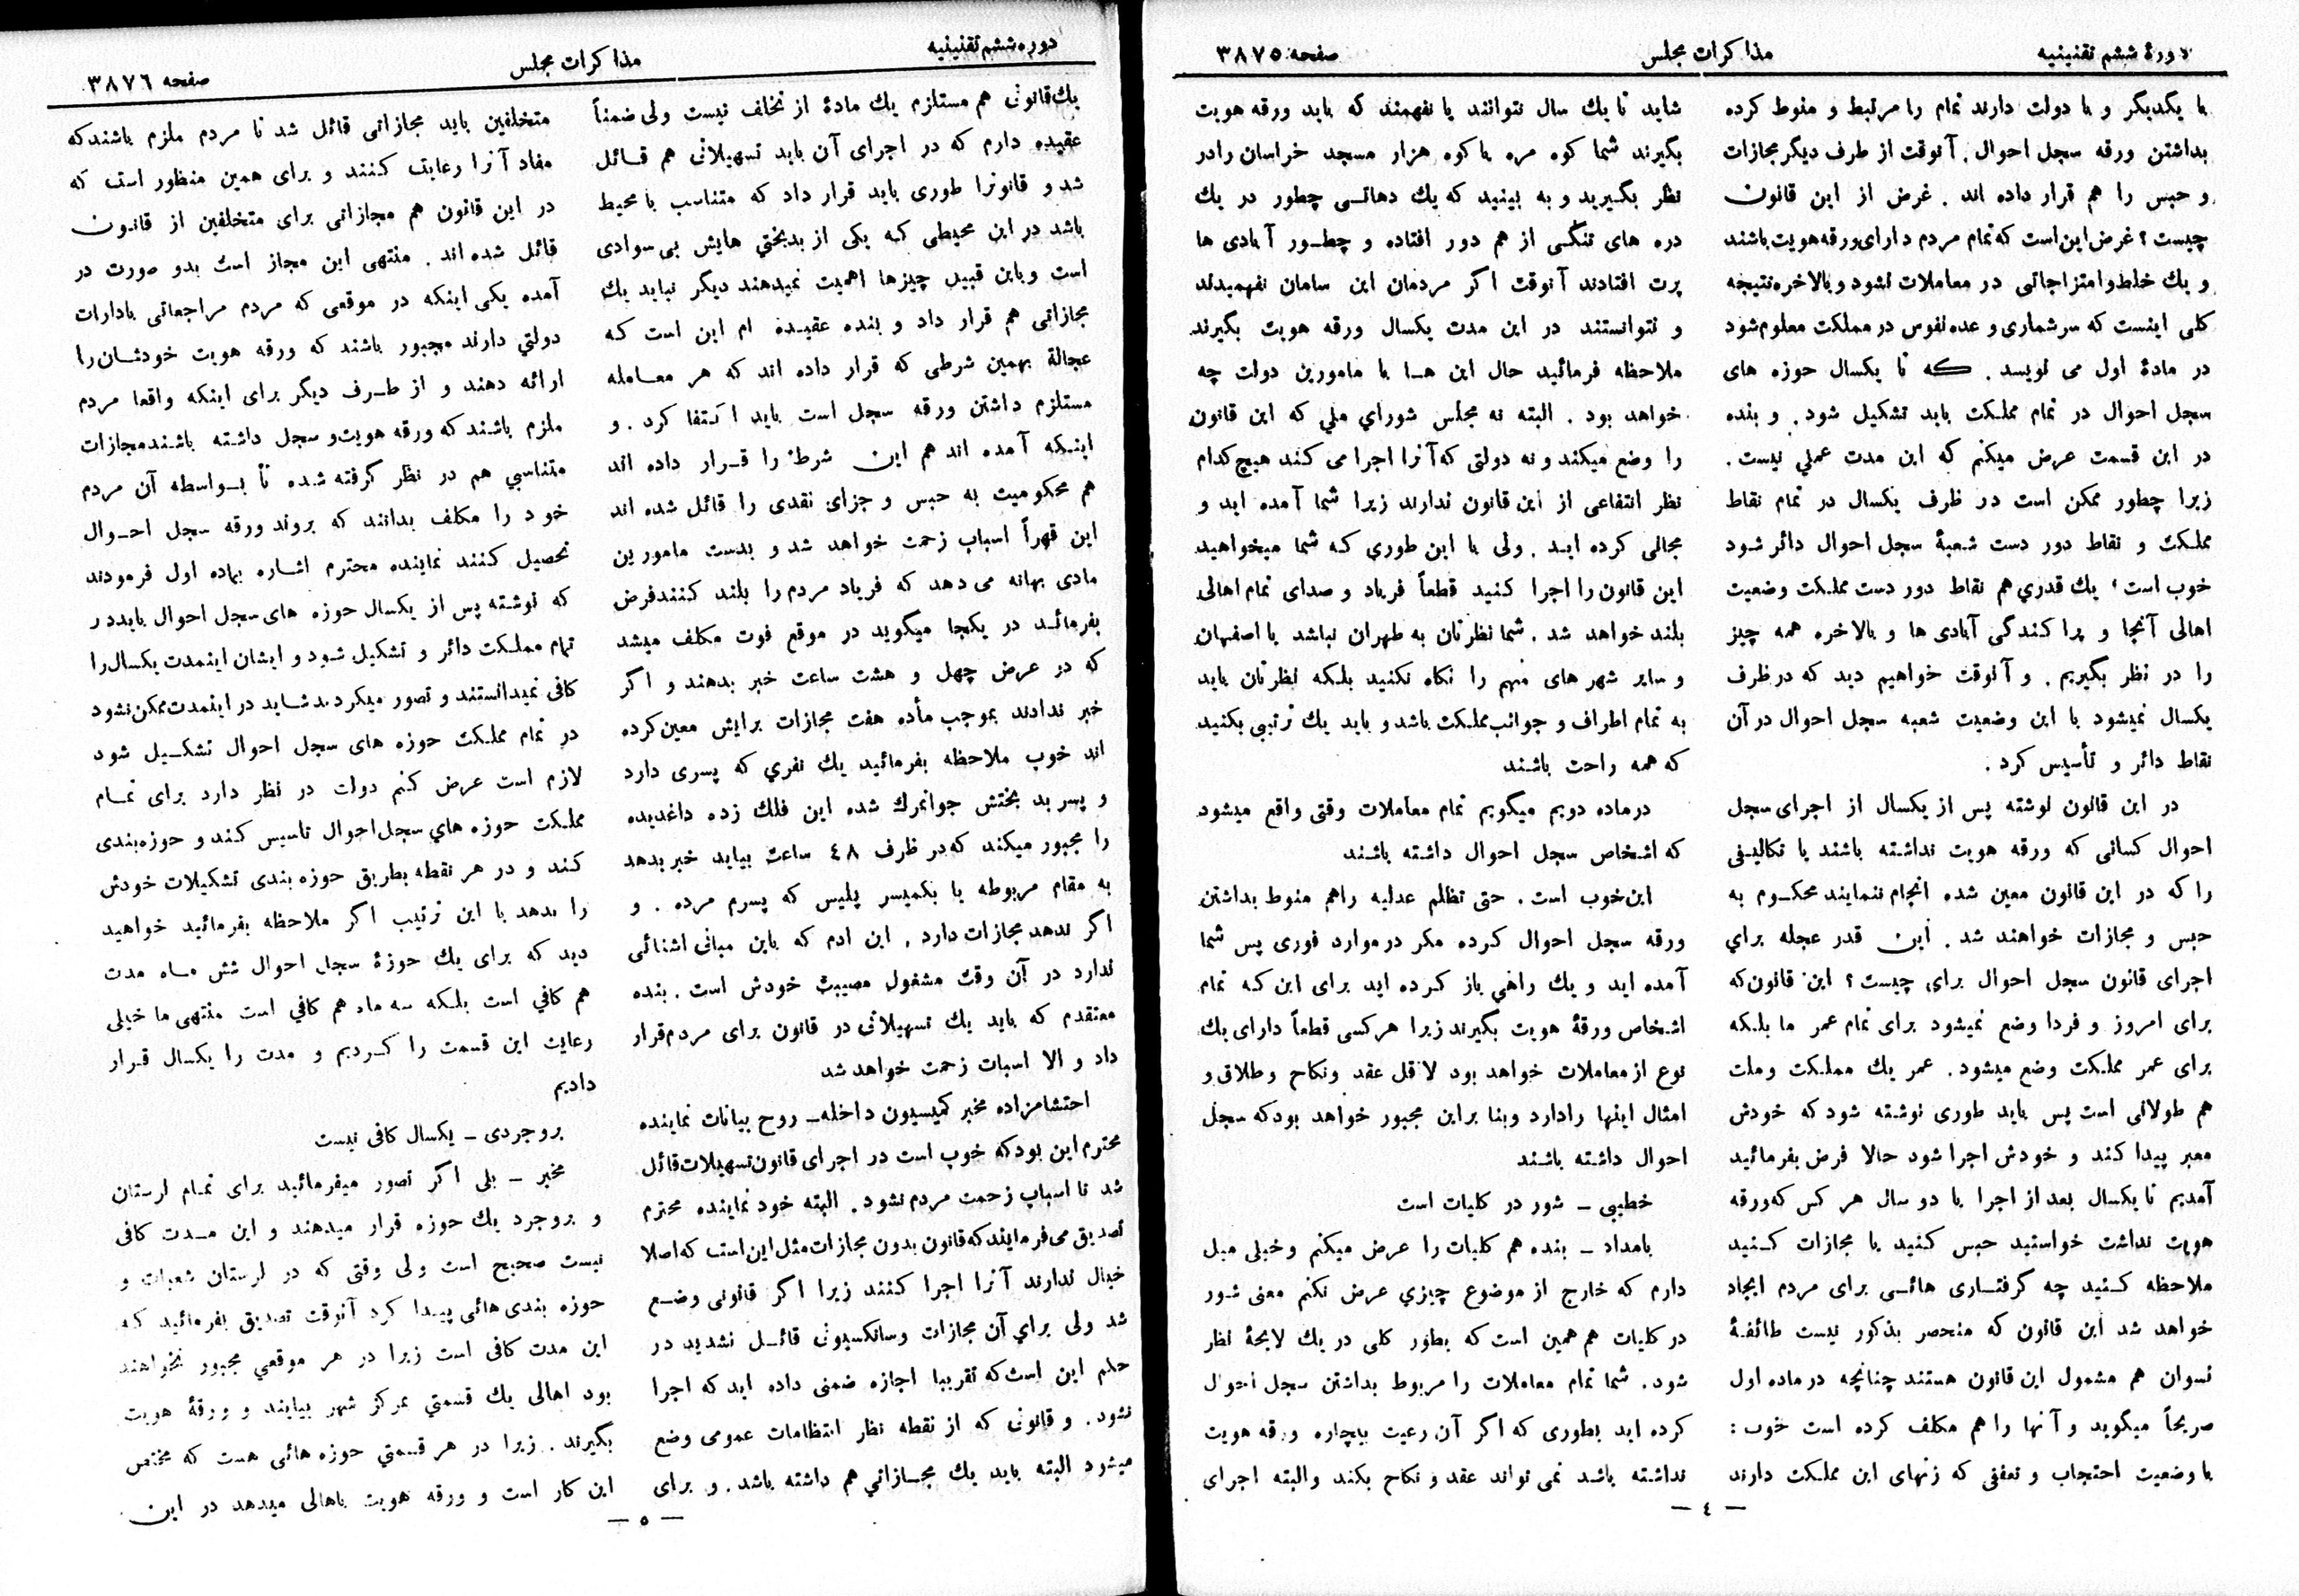 دورهٔ ششم تقنینیه
مذاکرات مجلس
صفحه ۳۸۷۵
با یکدیگر و با دولت دارند تمام را مرتبط و منوط کرده
بداشتن ورقه سجل احوال. آنوقت از طرف دیگر مجازات
و حبس را هم قرار داده اند. غرض از این قانون
چیست؟ غرض این است که تمام مردم دارای ورقه هویت باشند
و یك خلط و امتزاجاتی در معاملات نشود و بالاخره نتیجه
کلی اینست که سرشماری و عده نفوس در مملکت معلوم شود
در مادهٔ اول می نویسد. که تا یکسال حوزه های
سجل احوال در تمام مملکت باید تشکیل شود. و بنده
در این قسمت عرض میکنم که این مدت عملي نیست.
زیرا چطور ممکن است در ظرف یکسال در تمام نقاط
مملکت و نقاط دور دست شعبهٔ سجل احوال دائر شود
خوب است؛ یك قدري هم نقاط دور دست مملکت وضعیت
اهالی آنجا و پرا کندگی آبادی ها و بالاخره همه چیز
را در نظر بگیریم. و آنوقت خواهیم دید که در ظرف
یکسال نمیشود با این وضعیت شعبه سجل احوال در آن
نقاط دائر و تأسیس کرد.
در این قانون نوشته پس از یکسال از اجرای سجل
احوال کسانی که ورقه هویت نداشته باشند یا تکالیفی
را که در این قانون معین شده انجام ننمایند محکوم به
حبس و مجازات خواهند شد. این قدر عجله براي
اجرای قانون سجل احوال برای چیست؟ این قانون که
برای امروز و فردا وضع نمیشود برای تمام عمر ما بلکه
برای عمر مملکت وضع میشود. عمر یك مملکت و ملت
هم طولانی است پس باید طوری نوشته شود که خودش
معبر پیدا کند و خودش اجرا شود حالا فرض بفرمائید
آمدیم تا یکسال بعد از اجرا یا دو سال هر کس که ورقه
هویت نداشت خواستید حبس کنید یا مجازات کنید
ملاحظه کنید چه گرفتاری هائی برای مردم ایجاد
خواهد شد این قانون که منحصر بذکور نیست طائفهٔ
نسوان هم مشمول این قانون هستند چنانچه در ماده اول
صریحاً میگوید و آنها را هم مکلف کرده است خوب:
با وضعیت احتجاب و تعففی که زنهای این مملکت دارند
شاید تا یك سال نتوانند یا نفهمند که باید ورقه هویت
بگیرند شما کوه مره یا کوه هزار مسجد خراسان را در
نظر بگیرید و به بینید که یك دهاتی چطور در یك
دره های تنگی از هم دور افتاده و چطور آبادی ها
پرت افتادند آنوقت اگر مردمان این سامان نفهمیدند
و نتوانستند در این مدت یکسال ورقه هویت بگیرند
ملاحظه فرمائید حال این ها با مامورین دولت چه
خواهد بود. البته نه مجلس شورای ملي که این قانون
را وضع میکند و نه دولتی که آنرا اجرا می کند هیچ کدام
نظر انتفاعی از این قانون ندارند زیرا شما آمده اید و
مجانی کرده اید. ولی با این طوري که شما میخواهید
این قانون را اجرا کنید قطعاً فریاد و صدای تمام اهالی
بلند خواهد شد. شما نظرتان به طهران نباشد یا اصفهان
و سایر شهر های مهم را نگاه نکنید بلکه نظرتان باید
به تمام اطراف و جوانب مملکت باشد و باید یك ترتیبی بکنید
که همه راحت باشند
در ماده دویم میگویم تمام معاملات وقتی واقع میشود
که اشخاص سجل احوال داشته باشند
این خوب است. حتی تظلم عدلیه را هم منوط بداشتن
ورقه سجل احوال کرده مکر در موارد فوری پس شما
آمده اید و یك راهي باز کرده اید برای این که تمام
اشخاص ورقهٔ هویت بگیرند زیرا هر کسی قطعاً دارای یك
نوع از معاملات خواهد بود لا قل عقد و نکاح و طلاق و
امثال اینها را دارد و بنا براین مجبور خواهد بود که سجل
احوال داشته باشند
خطیبی ــ شور در کلیات است
بامداد ــ بنده هم کلیات را عرض میکنم و خیلی میل
دارم که خارج از موضوع چیزي عرض نکنم معنی شور
در کلیات هم همین است که بطور کلی در یك لایحهٔ نظر
شود. شما تمام معاملات را مربوط بداشتن سجل احوال
کرده اید بطوری که اگر آن رعیت بیچاره ورقه هویت
نداشته باشد نمی تواند عقد و نکاح بکند والبته اجرای
ــ ٤ ــ
دوره ششم تقنینیه
مذاکرات مجلس
صفحه ۳۸۷٦
یك قانونی هم مستلزم یك مادهٔ از تخلف نیست ولی ضمناً
عقیده دارم که در اجرای آن باید تسهیلاتی هم قائل
شد و قانونرا طوری باید قرار داد که متناسب با محیط
باشد در این محیطی که یکی از بدبختي هایش بی سوادی
است و باین قبیل چیزها اهمیت نمیدهند دیگر نباید یك
مجازاتی هم قرار داد و بنده عقیده ام این است که
عجالة بهمین شرطی که قرار داده اند که هر معامله
مستلزم داشتن ورقه سجل است باید اکتفا کرد. و
اینکه آمده اند هم این شرط را قرار داده اند
هم محکومیت به حبس و جزای نقدی را قائل شده اند
این قهراً اسباب زحمت خواهد شد و بدست مامورین
مادی بهانه می دهد که فریاد مردم را بلند کنند فرض
بفرمائید در یکجا میگوید در موقع فوت مکلف میشد
که در عرض چهل و هشت ساعت خبر بدهند و اگر
خبر ندادند بموجب مأده هفت مجازات برایش معین کرده
اند خوب ملاحظه بفرمائید یك نفري که پسری دارد
و پسر بد بختش جوانمرك شده این فلك زده داغدیده
را مجبور میکند که در ظرف ٤٨ ساعت بیاید خبر بدهد
به مقام مربوطه یا بکمیسر پلیس که پسرم مرده. و
اگر ندهد مجازات دارد. این ادم که باین مبانی اشنائی
ندارد در آن وقت مشغول مصیبت خودش است. بنده
معتقدم که باید یك تسهیلاتی در قانون برای مردم قرار
داد و الا اسبات زحمت خواهد شد
احتشامزاده مخبر کمیسیون داخله ــ روح بیانات نماینده
محترم این بود که خوب است در اجرای قانون تسهیلات قائل
شد تا اسباب زحمت مردم نشود. البته خود نماینده محترم
تصدیق می فرمایند که قانون بدون مجازات مثل این است که اصلا
خیال ندارند آنرا اجرا کنند زیرا اگر قانونی وضع
شد ولی براي آن مجازات و سانکسیونی قائل نشدید در
حکم این است که تقریبا اجازه ضمنی داده اید که اجرا
نشود. و قانونی که از نقطه نظر انتظامات عمومی وضع
میشود البته باید یك مجازاتي هم داشته باشد. و برای
متخلفین باید مجازاتی قائل شد تا مردم ملزم باشند که
مفاد آنرا رعایت کنند و برای همین منظور است که
در این قانون هم مجازاتی برای متخلفین از قانون
قائل شده اند. منتهی این مجاز است بدو صورت در
آمده یکی اینکه در موقعی که مردم مراجعاتی بادارات
دولتي دارند مجبور باشند که ورقه هویت خودشان را
ارائه دهند و از طرف دیگر برای اینکه واقعا مردم
ملزم باشند که ورقه هویت و سجل داشته باشند مجازات
متناسبي هم در نظر گرفته شده تا بواسطه آن مردم
خود را مکلف بدانند که بروند ورقه سجل احوال
تحصیل کنند نماینده محترم اشاره بماده اول فرمودند
که نوشته پس از یکسال حوزه های سجل احوال باید در
تمام مملکت دائر و تشکیل شود و ایشان اینمدت یکسال را
کافی نمیدانستند و تصور میکردند شاید در اینمدت ممکن نشود
در تمام مملکت حوزه های سجل احوال تشکیل شود
لازم است عرض کنم دولت در نظر دارد برای تمام
مملکت حوزه هاي سجل احوال تاسیس کند و حوزه بندی
کند و در هر نقطه بطریق حوزه بندی تشکیلات خودش
را بدهد با این ترتیب اگر ملاحظه بفرمائید خواهید
دید که برای یك حوزهٔ سجل احوال شش ماه مدت
هم کافي است بلکه سه ماه هم کافي است منتهی ما خیلی
رعایت این قسمت را کردیم و مدت را یکسال قرار
دادیم
بروجردی ــ یکسال کافی نیست
مخبر ــ بلی اگر تصور میفرمائید برای تمام لرستان
و بروجرد یك حوزه قرار میدهند و این مدت کافی
نیست صحیح است ولی وقتی که در لرستان شعبات و
حوزه بندی هائی پیدا کرد آنوقت تصدیق بفرمائید که
این مدت کافی است زیرا در هر موقعي مجبور نخواهند
بود اهالی یك قسمتي بمرکز شهر بیایند و ورقهٔ هویت
بگیرند. زیرا در هر قسمتي حوزه هائی هست که مختص
این کار است و ورقه هویت باهالی میدهد در این
ــ ٥ ــ